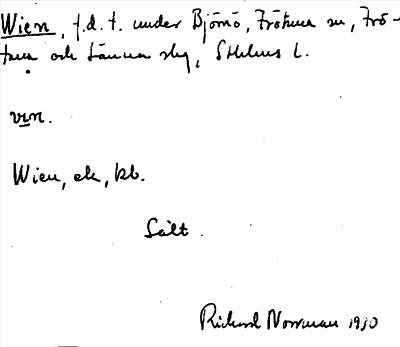 Wien, f.d.t. under Björnö, Frötuna sn, Frö-
tuna och Länna slg, Sthlms l.
vın.
Wien, ek, kb.
Sält.
Richard Norrman 1930